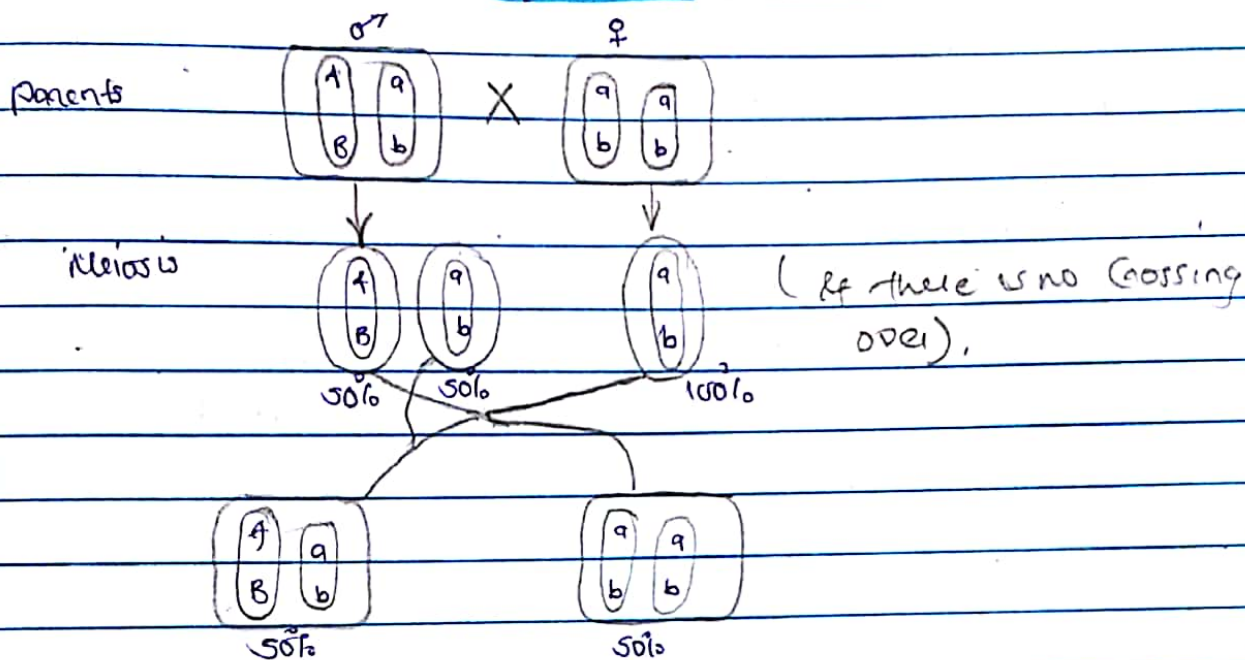 ♂ ♀
Parents A a X a a
B b b b
Meiosis A a a (If there is no Crossing
B b b over).
50% 50% 100%
A a a a
B b b b
50% 50%